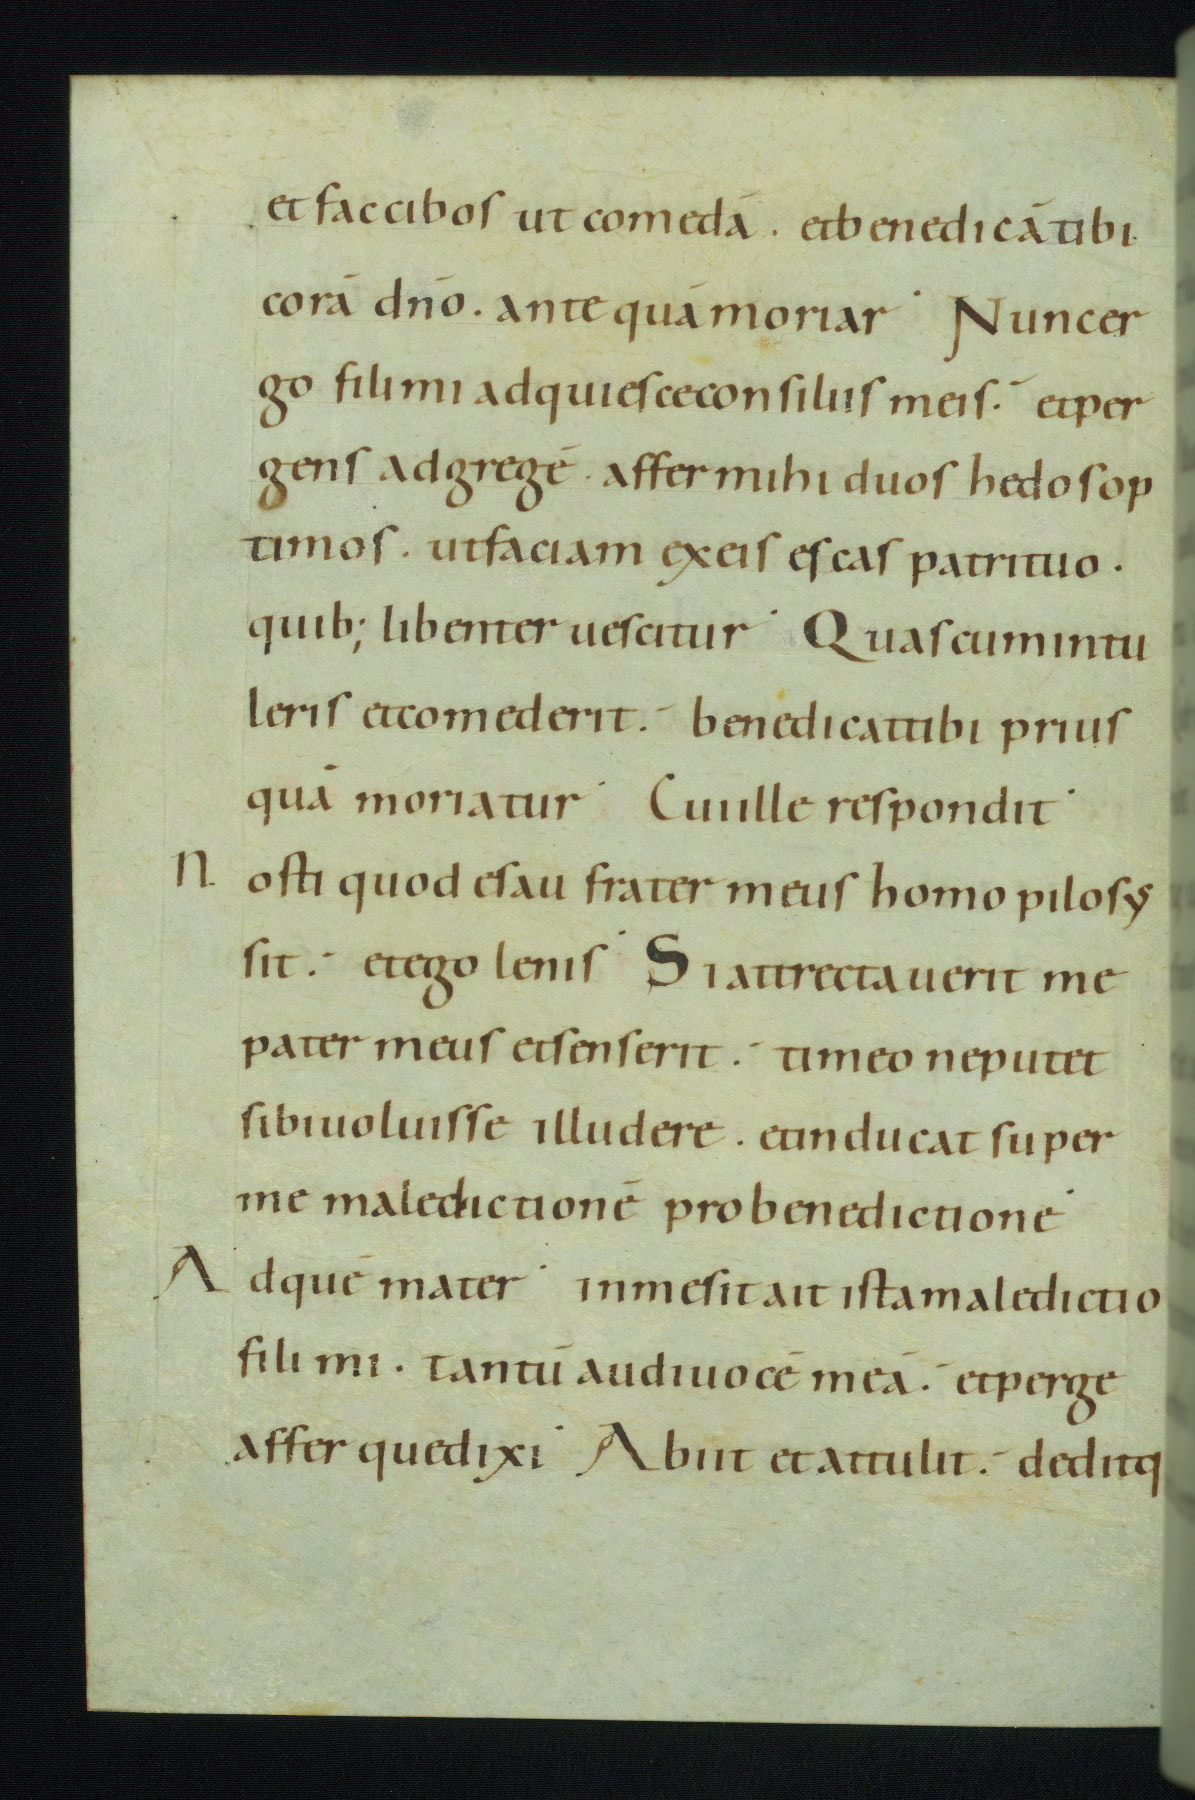 et fac cibos ut comedā . et benedicā tibi
corā dnō . ante quā moriar Nunc er
go fili mi adquiesce consiliis meis . et per
gens ad gregē . affer mihi duos hedos op
timos . ut faciam ex eis escas patri tuo .
quib; libenter uescitur Quas cum intu
leris et comederit . benedicat tibi prius
quā moriatur Cui ille respondit
Nosti quod esau frater meus homo pilosus
sit . et ego lenis Si attrectauerit me
pater meus et senserit . timeo ne putet
sibi uoluisse illudere . et inducat super
me maledictionē pro benedictione
Ad quē mater in me sit ait ista maledictio
fili mi . tantū audi uocē meā . et perge
affer que dixi Abiit et attulit . deditq